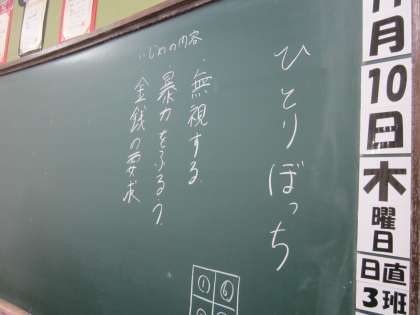 月
10
日
木
曜日
日直
3班
ひとりぼっち
いじめの内容
・無視する
・暴力をふるう
金銭の要求
① ⑥